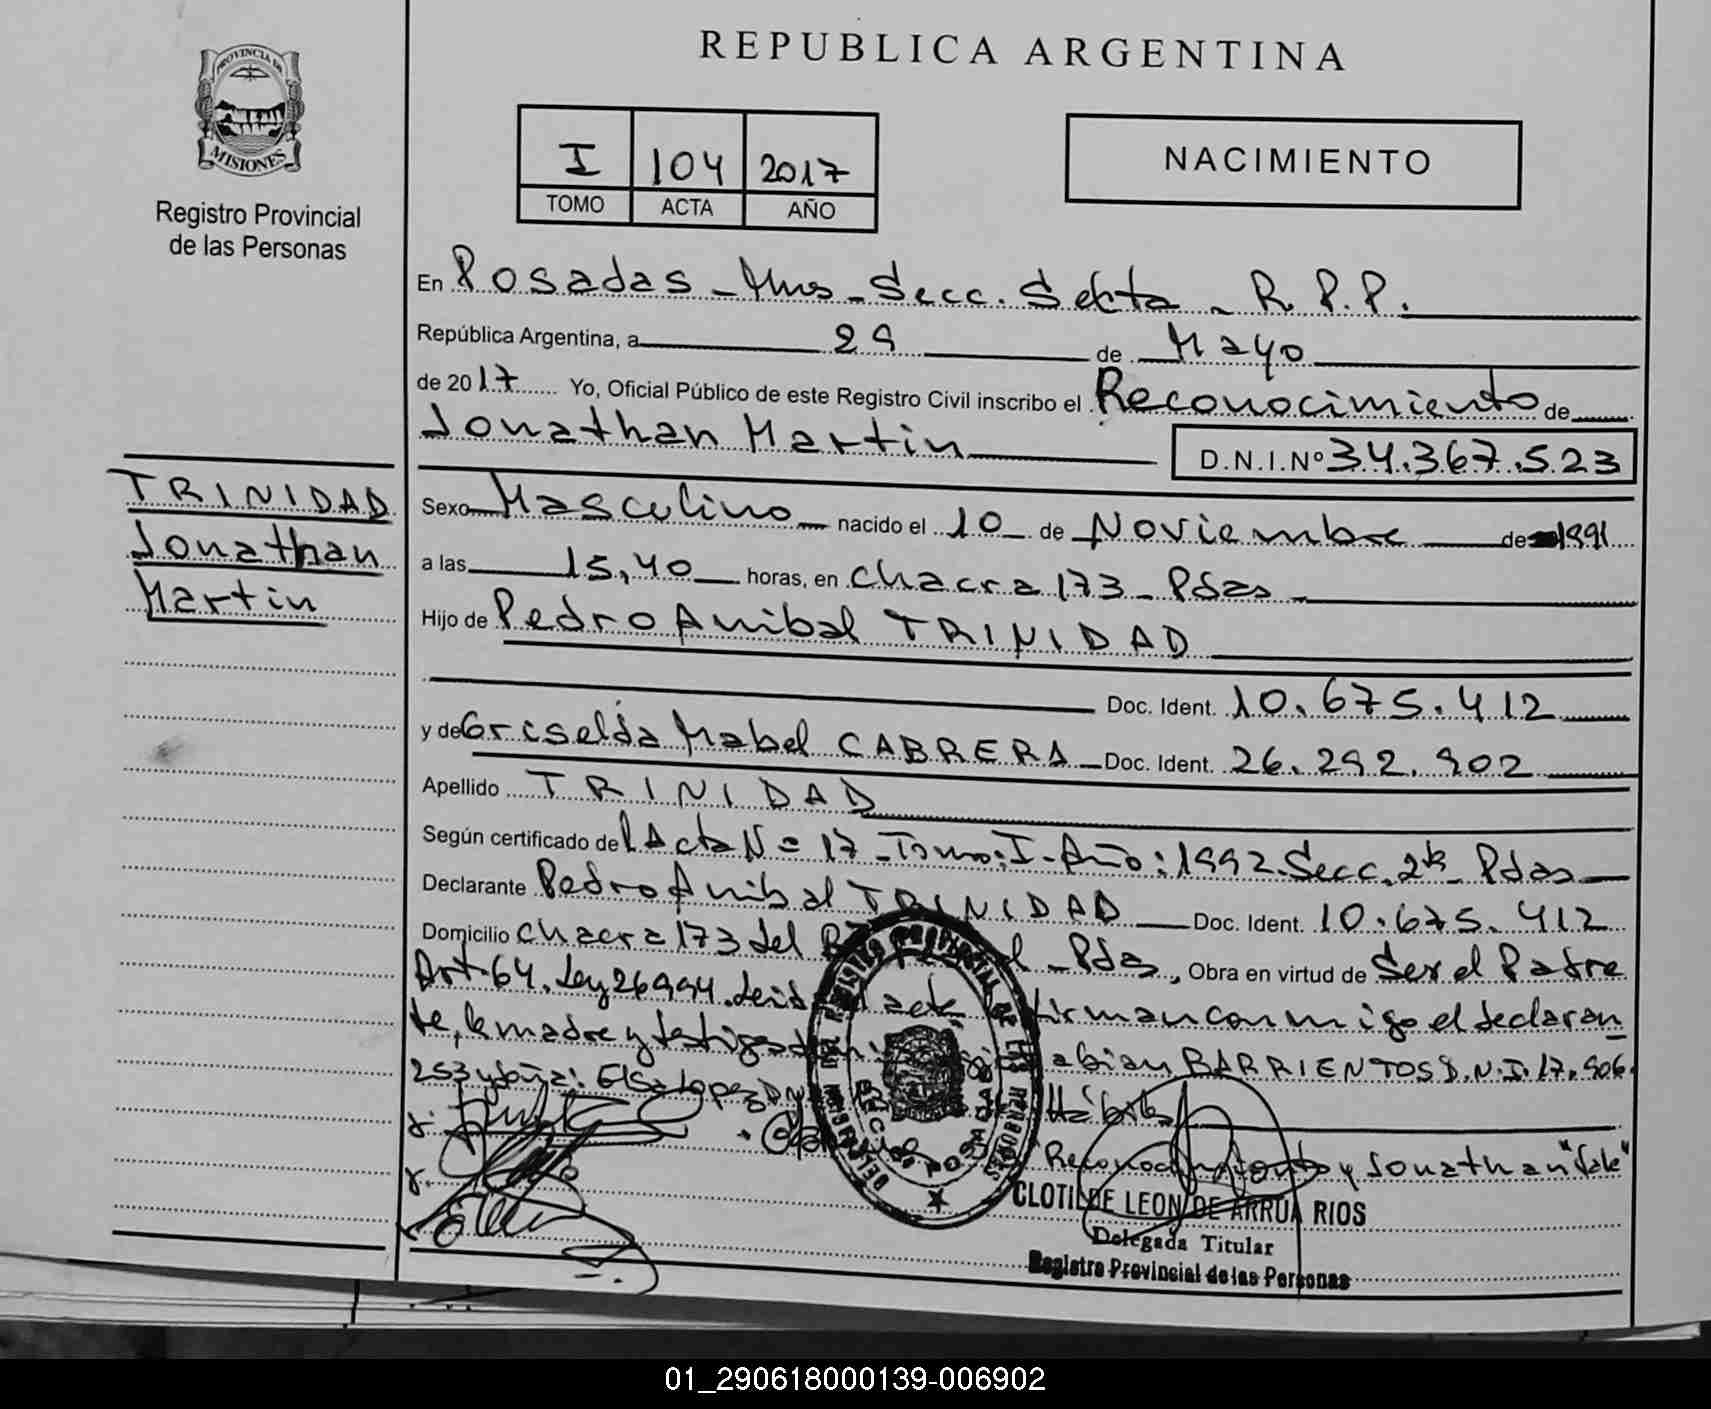 REPUBLICA ARGENTINA
PROVINCIA DE
MISIONES
Registro Provincial
de las Personas
I 104 2017
TOMO ACTA AÑO
NACIMIENTO
En Posadas - Mnes - Secc. Sexta - R.P.P.
República Argentina, a 29 de Mayo
de 2017 Yo, Oficial Público de este Registro Civil inscribo el Reconocimiento de
Jonathan Martin D.N.I.Nº 34.367.523
TRINIDAD
Jonathan
Martin
Sexo Masculino nacido el 10 de Noviembre de 1991
a las 15,40 horas, en chacra 173 - Pdas -
Hijo de Pedro Anibal TRINIDAD
Doc. Ident. 10.675.412
y de Griselda Mabel CABRERA Doc. Ident. 26.292.902
Apellido TRINIDAD
Según certificado del Acta Nº 17 - Tomo: I - Año: 1992. Secc. 2da - Pdas
Declarante Pedro Anibal TRINIDAD Doc. Ident. 10.675.412
Domicilio chacra 173 del - Pdas, Obra en virtud de Ser el Padre
Art. 64. Ley 26994. Leida el acta firman conmigo el declaran
te, la madre y testigos Fabian BARRIENTOS D.N.I. 17.906.
253 y doña: Elsa Lopez Hábiles
Reconocimiento y Jonathan "Vale"
REGISTRO PROVINCIAL DE LAS PERSONAS
POSADAS
CLOTILDE LEON DE ARRUA RIOS
Delegada Titular
Registro Provincial de las Personas
01_290618000139-006902